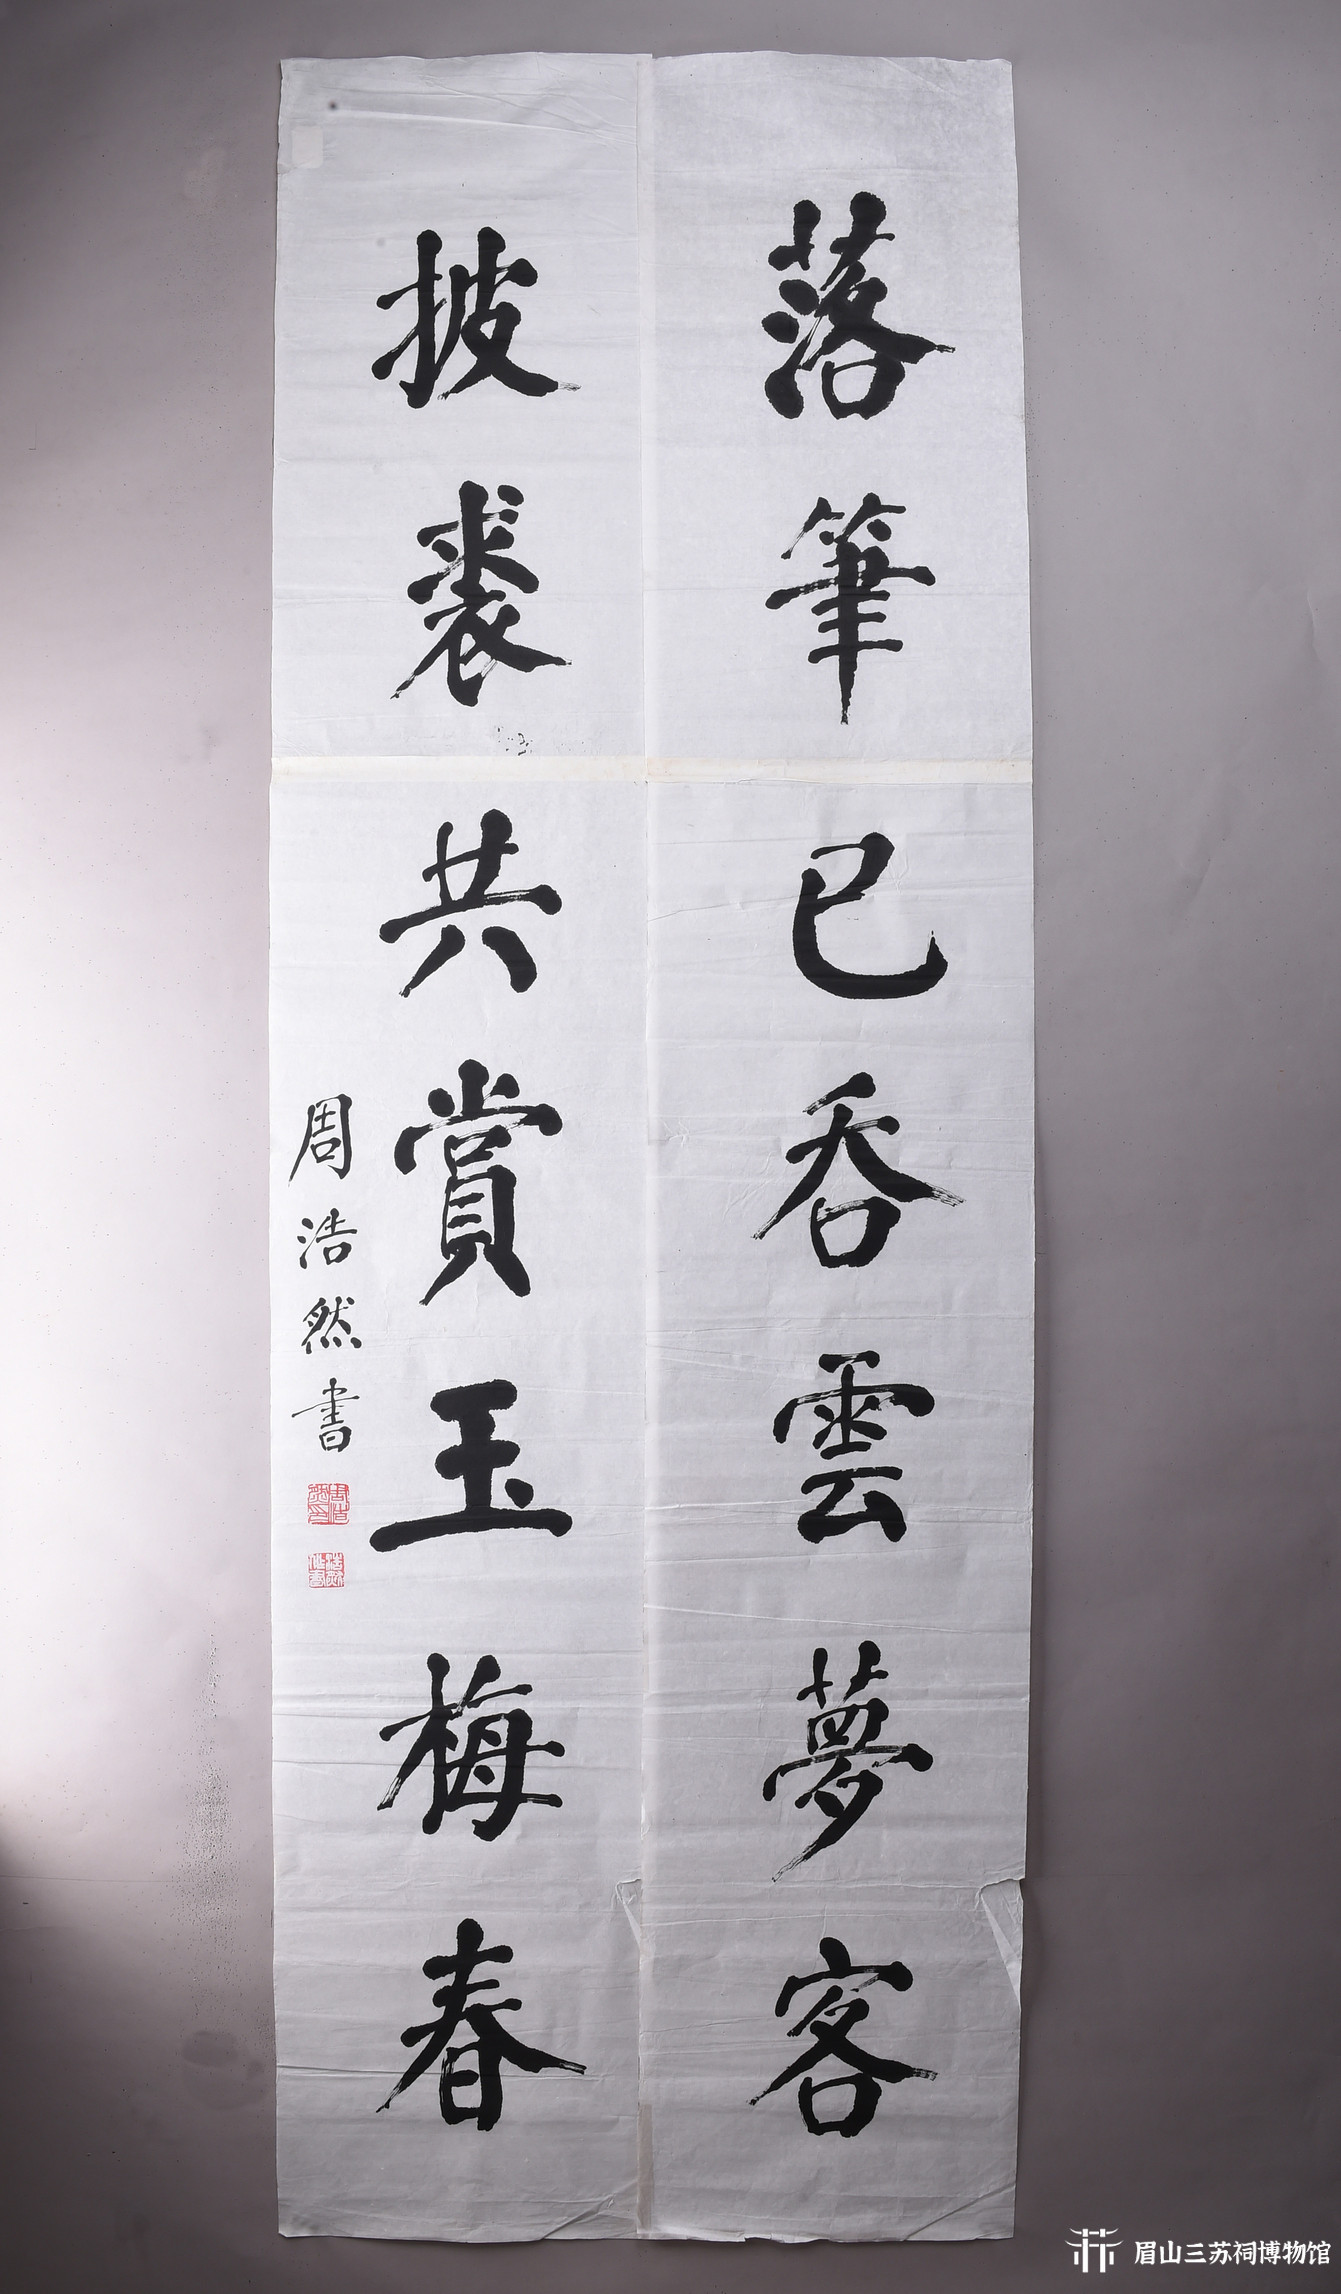 落筆已吞雲夢客
披裘共賞玉梅春
周浩然書
周浩然印
眉山三苏祠博物馆